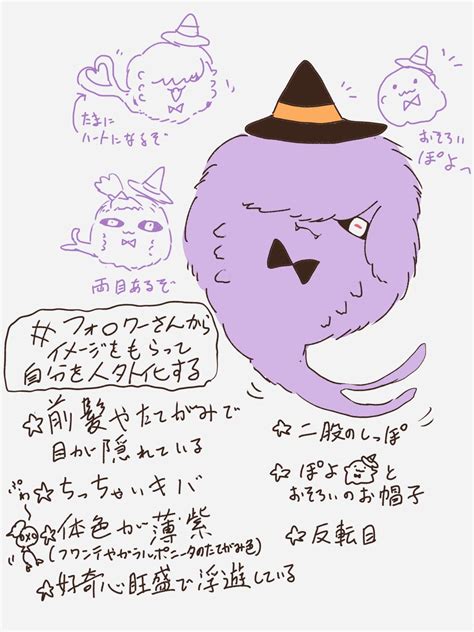 たまに
ハートになるぞ
おそろい
ぽよっ
両目あるぞ
#フォロワーさんから
イメージをもらって
自分を人外化する
☆前髪やたてがみで
目が隠れている
☆ちっちゃいキバ
ぷわ
☆体色が薄紫
(フワンテやガラルポニータのたてがみ色)
☆好奇心旺盛で浮遊している
☆二股のしっぽ
☆ぽよと
おそろいのお帽子
☆反転目